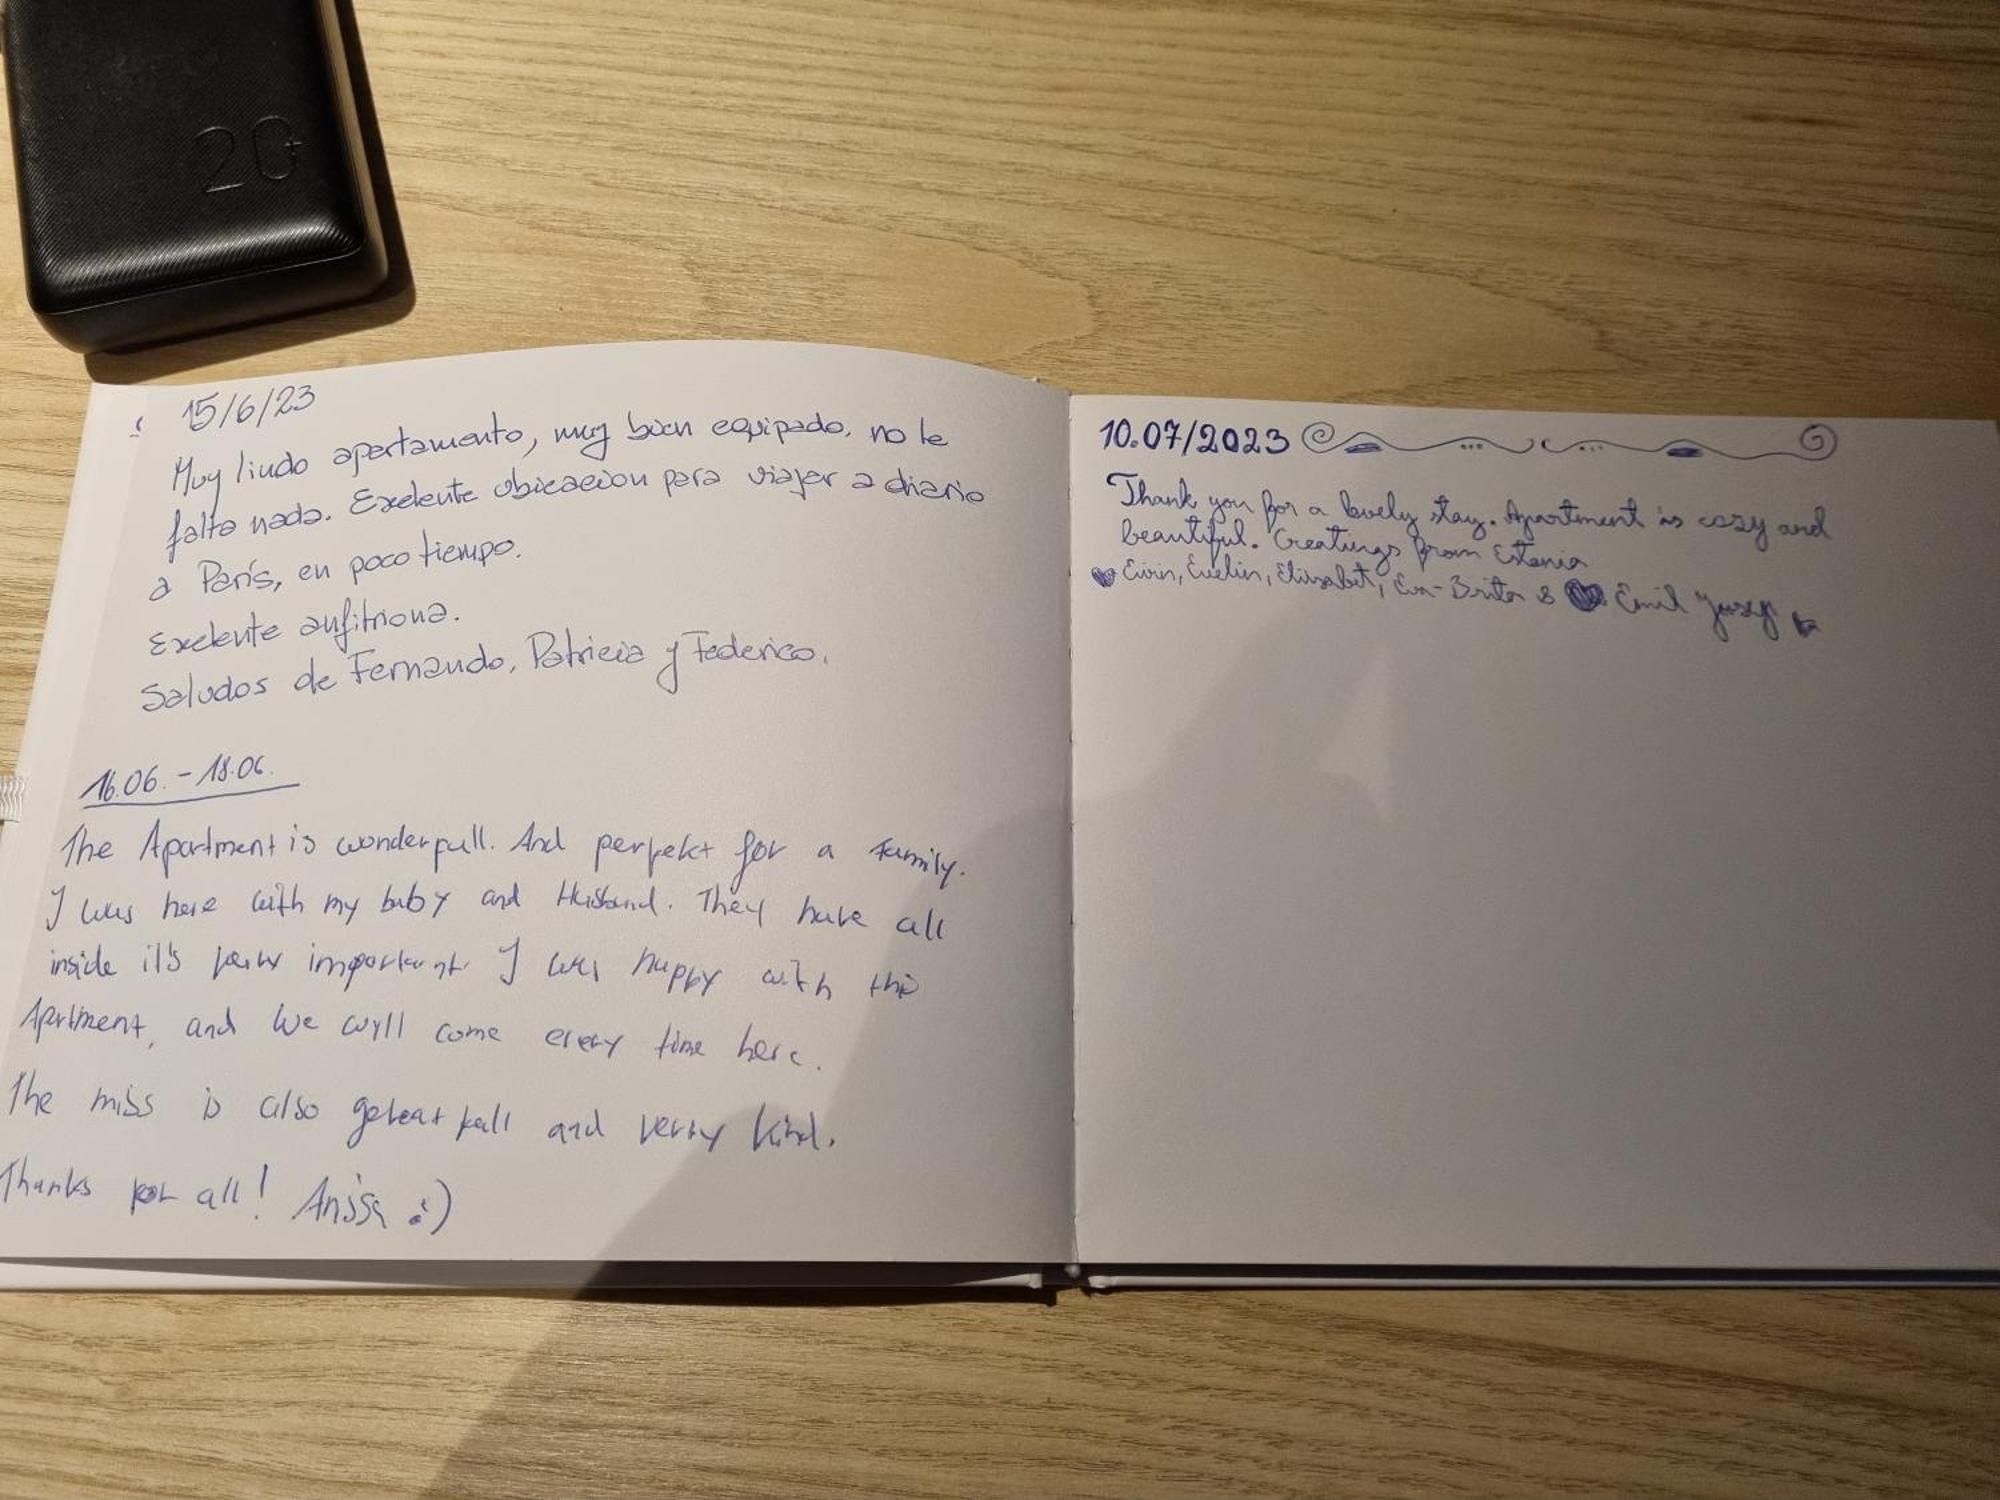 20+
15/6/23
Muy lindo apartamento, muy buen equipado, no le
falta nada. Exelente ubicacion para viajar a diario
a París, en poco tiempo.
Exelente anfitriona.
Saludos de Fernando, Patricia y Federico.
16.06. - 18.06.
The Apartment is wonderfull. And perfekt for a Family.
I was here with my baby and Husband. They have all
inside it's important. I was happy with this
Aprtment, and We wyll come every time here.
The miss is also and verry kind.
Thanks for all! Anissa :)
10.07/2023
Thank you for a lovely stay. Apartment is cozy and
beautiful. Greatings from Estonia
Eivin, Evelin, Eliisabet, & Emil